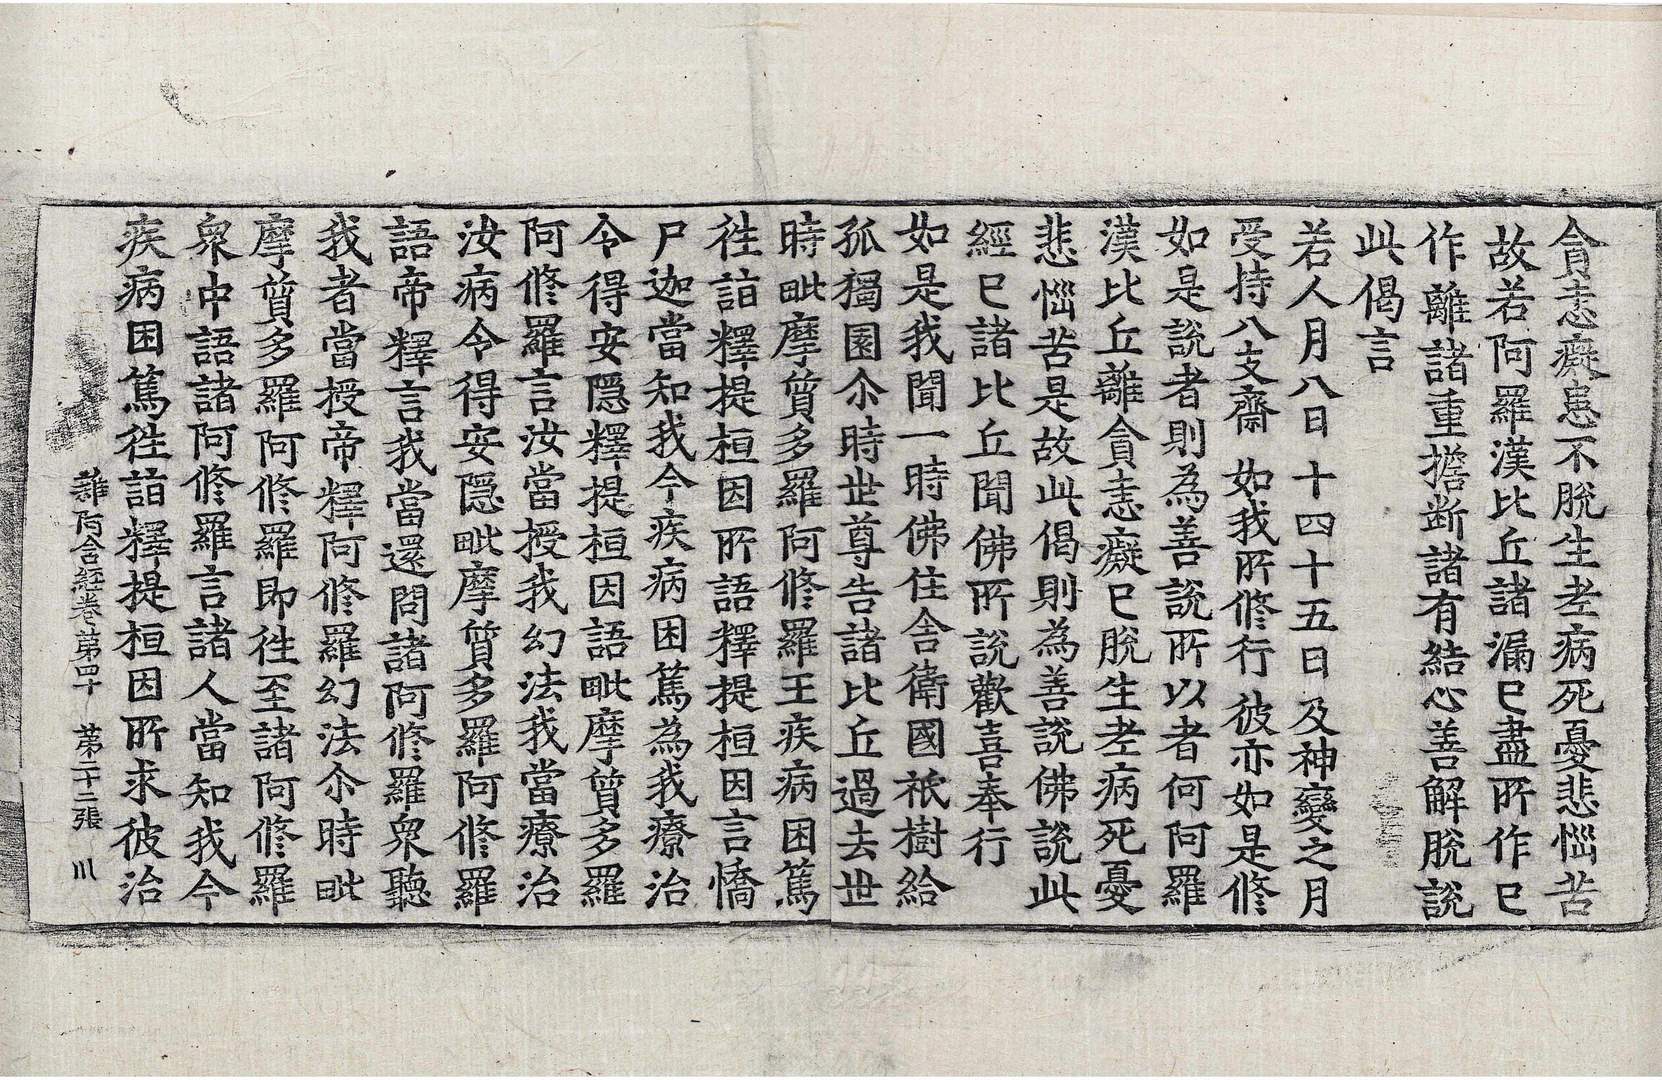 貪恚癡患不脫生老病死憂悲惱苦
故若阿羅漢比丘諸漏已盡所作已
作離諸重擔断諸有結心善解脫說
此偈言
若人月八日 十四十五日 及神變之月
受持八支齋 如我所修行 彼亦如是修
如是說者則為善說所以者何阿羅
漢比丘離貪恚癡已脫生老病死憂
悲惱苦是故此偈則為善說佛說此
經已諸比丘聞佛所說歡喜奉行
如是我聞一時佛住舍衛國祇樹給
孤獨園尒時世尊告諸比丘過去世
時毗摩質多羅阿修羅王疾病困篤
往詣釋提桓因所語釋提桓因言憍
尸迦當知我今疾病困篤為我療治
令得安隱釋提桓因語毗摩質多羅
阿修羅言汝當授我幻法我當療治
汝病令得安隱毗摩質多羅阿修羅
語帝釋言我當還問諸阿修羅衆聽
我者當授帝釋阿修羅幻法尒時毗
摩質多羅阿修羅即往至諸阿修羅
衆中語諸阿修羅言諸人當知我今
疾病困篤往詣釋提桓因所求彼治
雜阿含經卷第四十 第二十二張 川